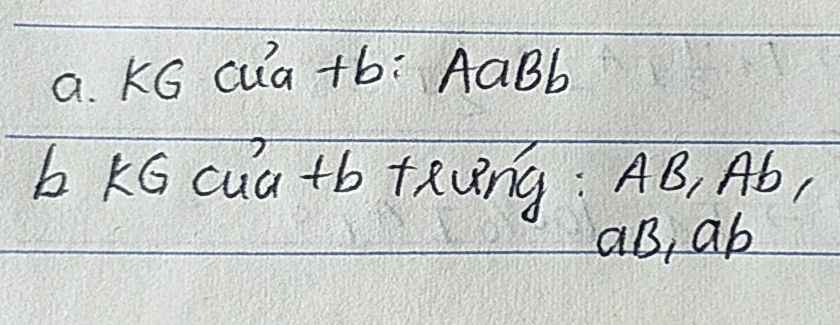 a. KG của tb: AaBb
b KG của tb trứng: AB, Ab,
aB, ab